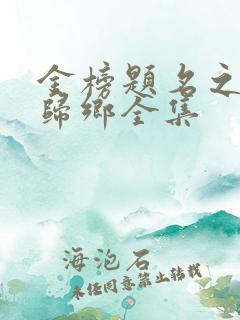 金榜題名之
歸鄉全集
海泡石
未经同意禁止转载